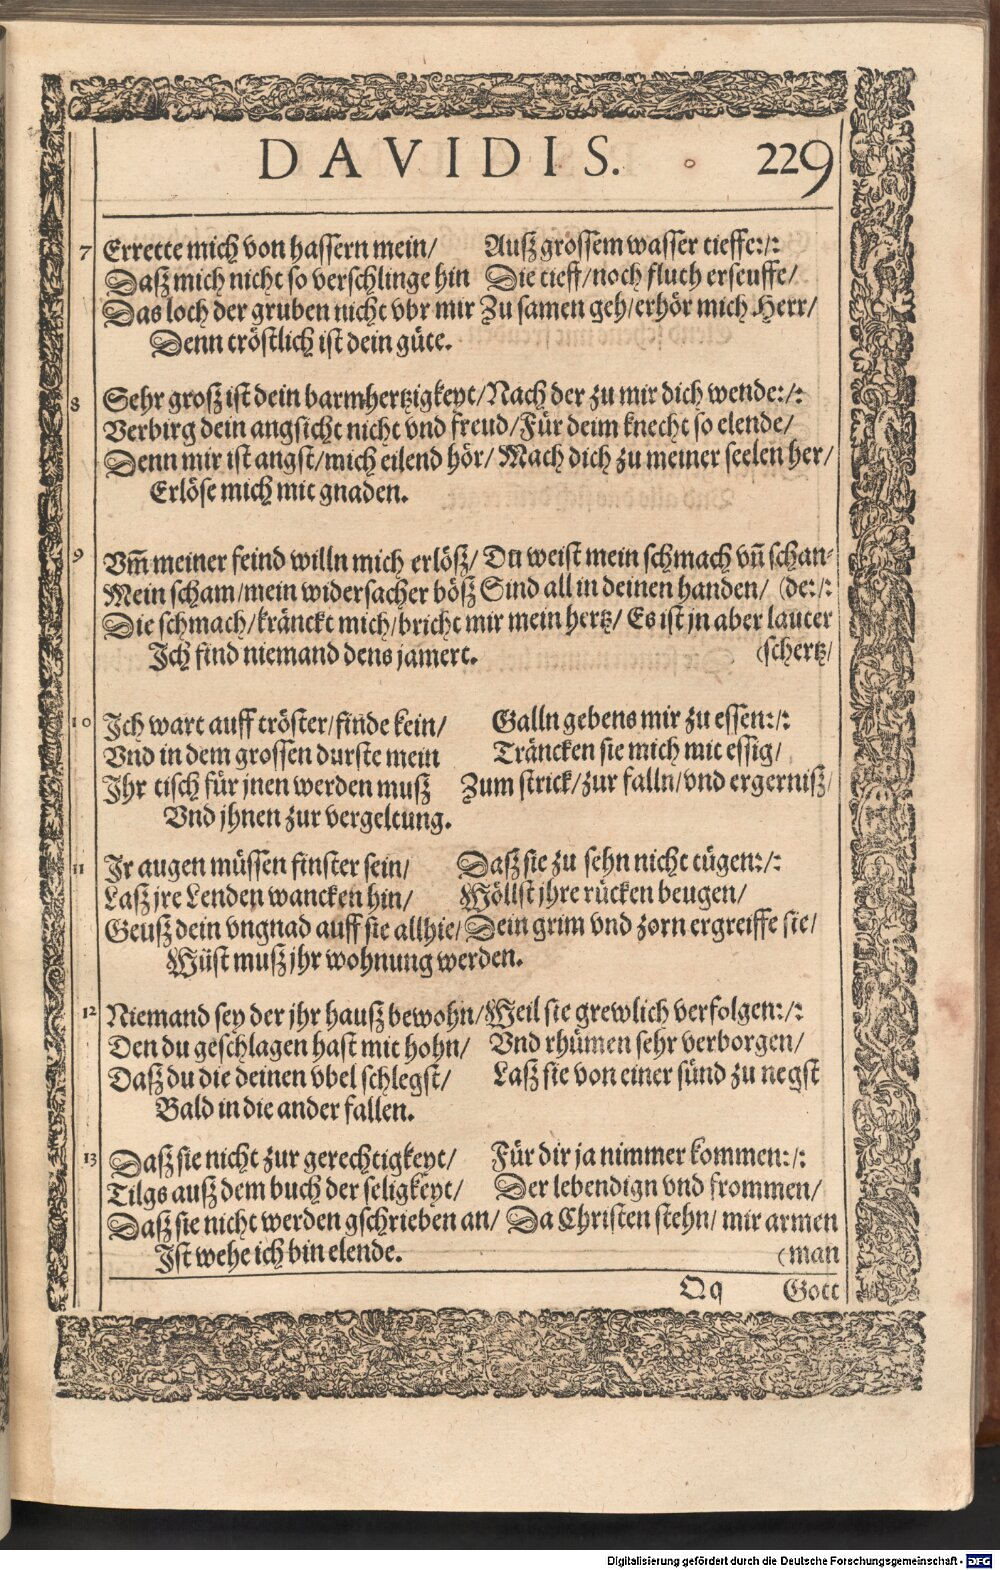 DAVIDIS. 229
7 Errette mich von hassern mein/ Auß grossem wasser tieffe:/:
Daß mich nicht so verschlinge hin Die tieff/noch fluth erseuffe/
Das loch der gruben nicht vbr mir Zu samen geh/erhör mich Herr/
Denn tröstlich ist dein güte.
8 Sehr groß ist dein barmhertzigkeyt/Nach der zu mir dich wende:/:
Verbirg dein angsicht nicht vnd freud/Für deim knecht so elende/
Denn mir ist angst/mich eilend hör/ Mach dich zu meiner seelen her/
Erlöse mich mit gnaden.
9 Vm̃ meiner feind willn mich erlöß/ Du weist mein schmach vñ schan-
Mein scham/mein widersacher böß Sind all in deinen handen/ (de:/:
Die schmach/kränckt mich/bricht mir mein hertz/ Es ist jn aber lauter
Ich find niemand dens jamert. (schertz/
10 Ich wart auff tröster/finde kein/ Galln gebens mir zu essen:/:
Vnd in dem grossen durste mein Träncken sie mich mit essig/
Ihr tisch für jnen werden muß Zum strick/zur falln/vnd ergerniß/
Vnd jhnen zur vergeltung.
11 Jr augen müssen finster sein/ Daß sie zu sehn nicht tügen:/:
Laß jre Lenden wancken hin/ Wöllst jhre rücken beugen/
Geuß dein vngnad auff sie allhie/ Dein grim vnd zorn ergreiffe sie/
Wüst muß jhr wohnung werden.
12 Niemand sey der jhr hauß bewohn/Weil sie grewlich verfolgen:/:
Den du geschlagen hast mit hohn/ Vnd rhümen sehr verborgen/
Daß du die deinen vbel schlegst/ Laß sie von einer sünd zu negst
Bald in die ander fallen.
13 Daß sie nicht zur gerechtigkeyt/ Für dir ja nimmer kommen:/:
Tilgs auß dem buch der seligkeyt/ Der lebendign vnd frommen/
Daß sie nicht werden gschrieben an/ Da Christen stehn/ mir armen
Ist wehe ich bin elende. (man
Qq Gott
Digitalisierung gefördert durch die Deutsche Forschungsgemeinschaft - DFG